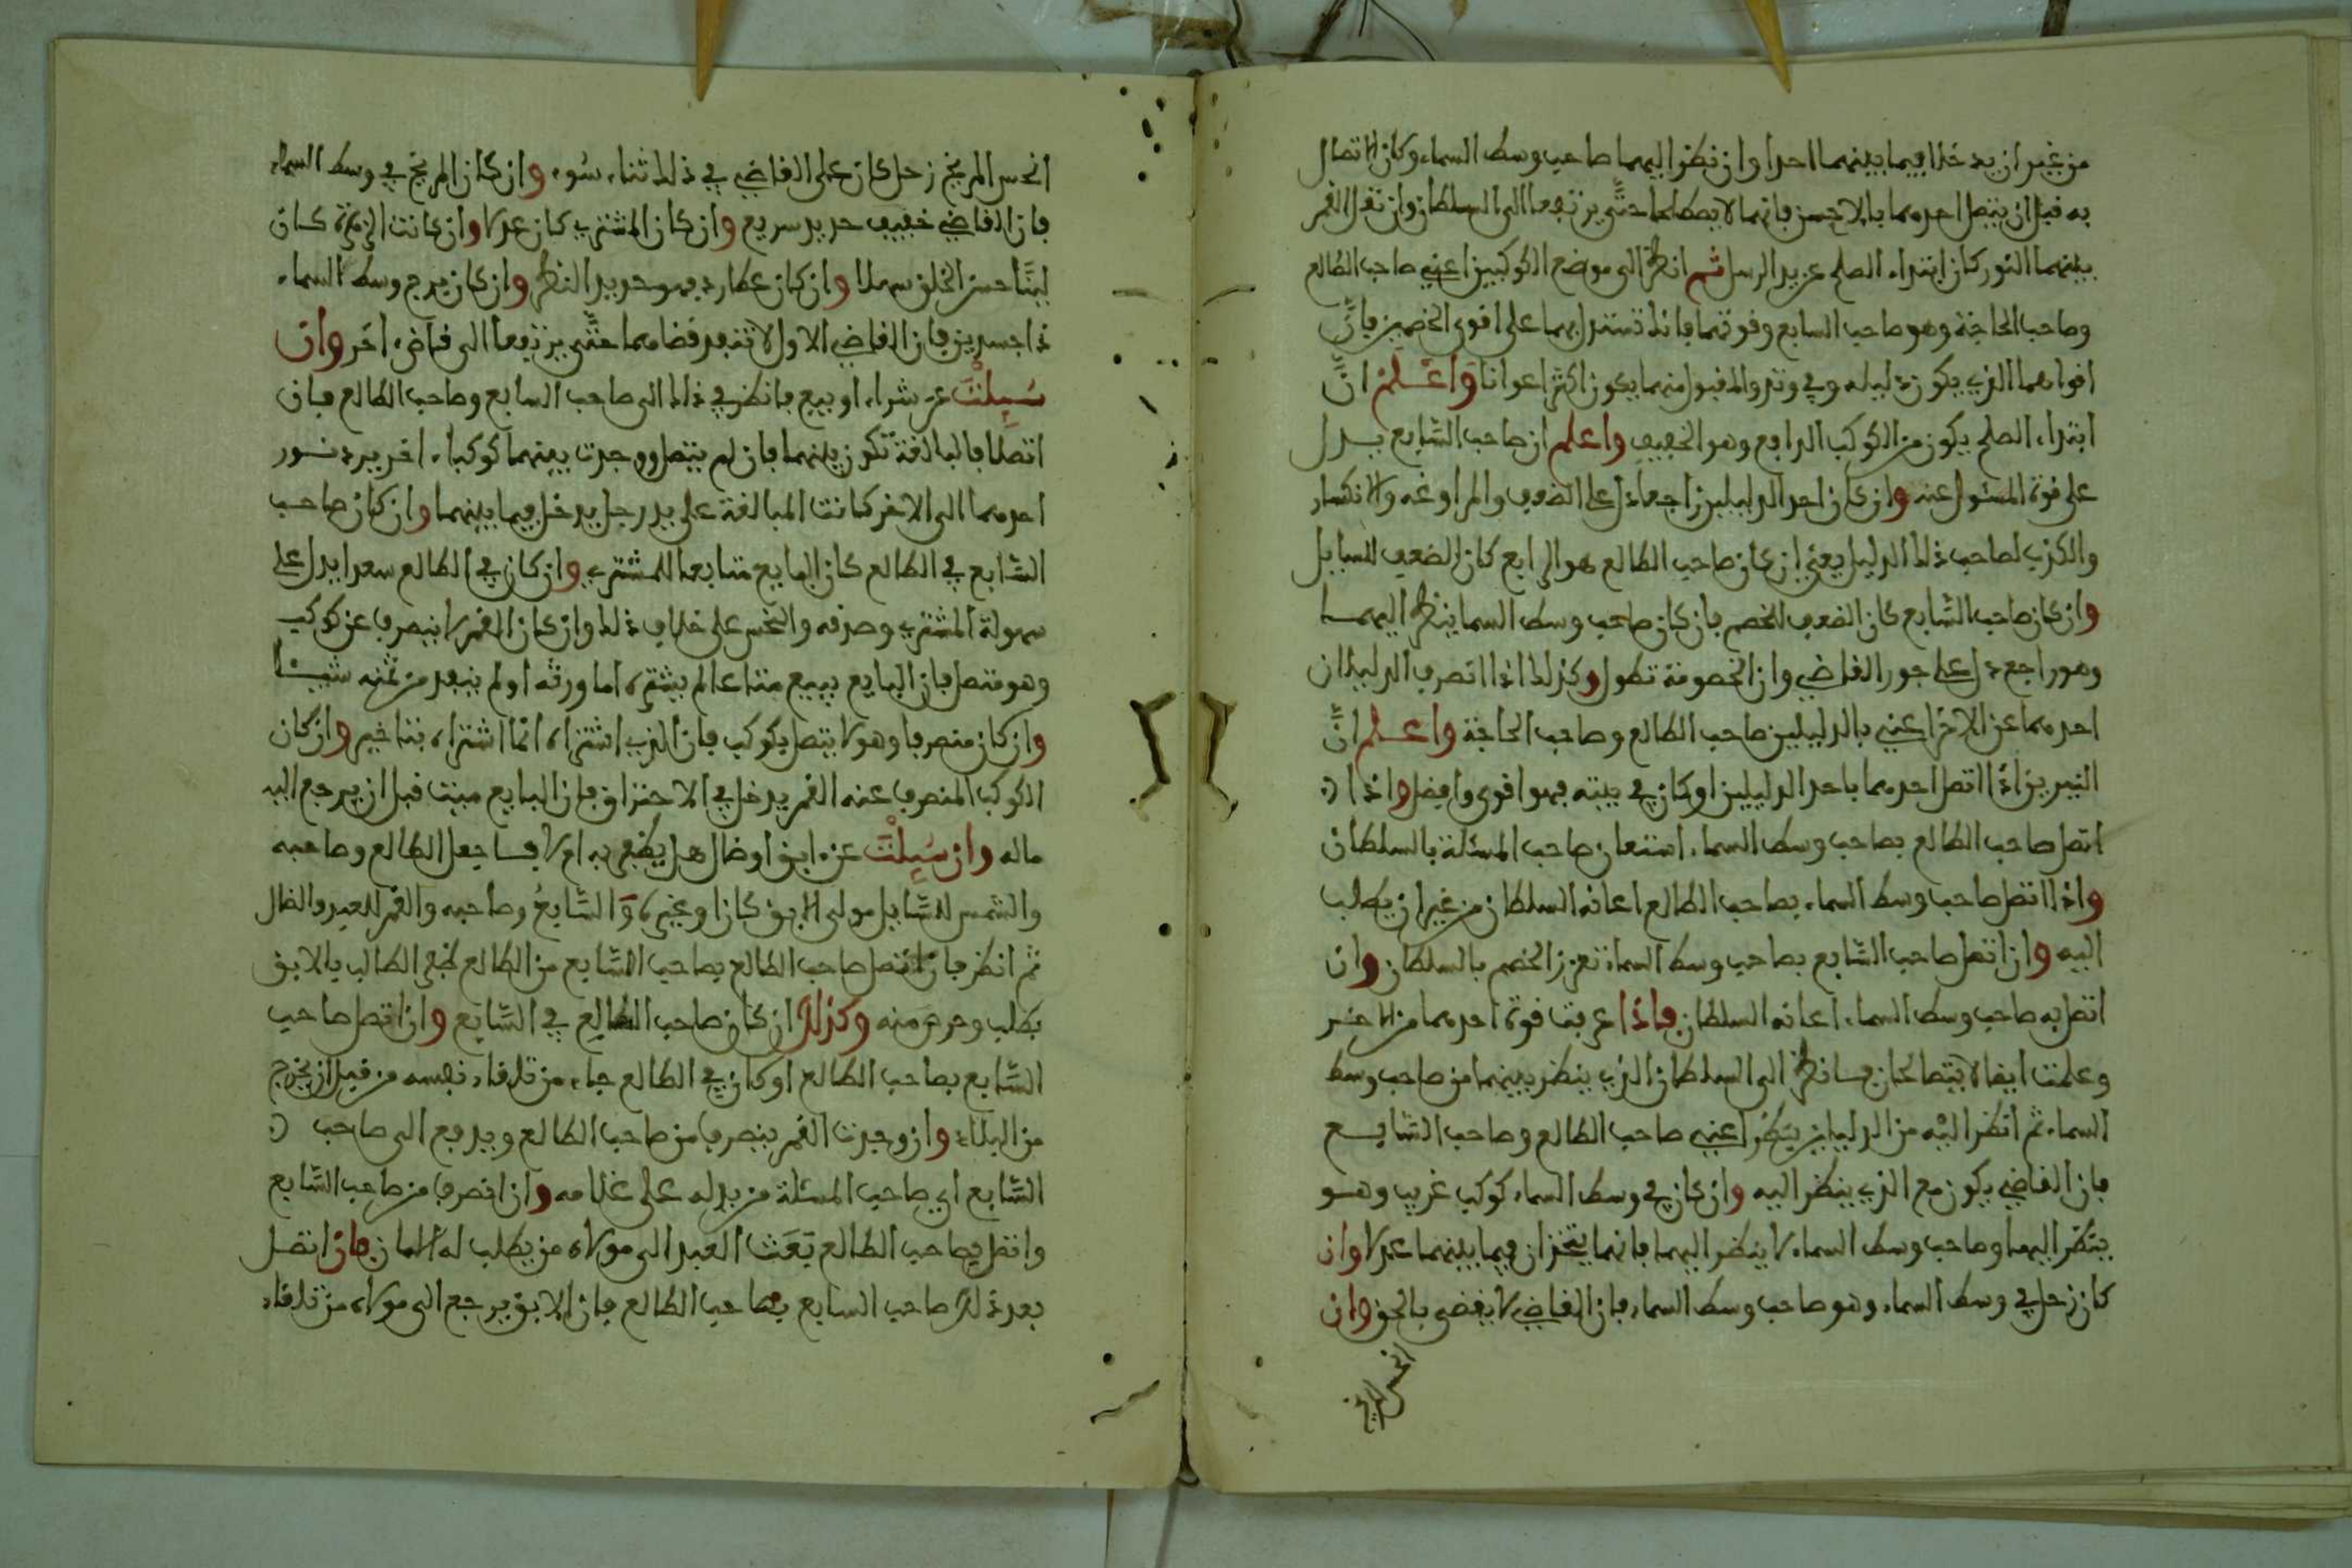 من غير ان يدخلا فيما بينهما احدا وان نظر اليهما صاحب وسط السماء وكان الاتصال
به قبل ان يتصل احدهما بالاخر فانهما لا يصطلحا حتى يرتفعا الى السلطان وان نقل القمر
بينهما النور كان ابتداء الصلح عن يد الرسل ثم انظر الى موضع الكوكبين اعني صاحب الطالع
وصاحب الحاجة وهو صاحب السابع وقوتهما فانك تستدل بهما على اقوى الخصمين فان
اقواهما الذي يكون دليله في وتد والمقبول منهما يكون اكثر اعوانا واعلم ان
ابتداء الصلح يكون من الكوكب الدافع وهو الخفيف واعلم ان صاحب السابع يدل
على قوة المسئول عنه وان كان احد الدليلين راجعا دل على الضعف والمراوغه والانكسار
والكذب لصاحب ذلك الدليل يعني ان كان صاحب الطالع هو الراجع كان الضعف للسايل
وان كان صاحب السابع كان الضعف للخصم فان كان صاحب وسط السما ينظر اليهما
وهو راجع دل على جور القاضي وان الخصومة تطول وكذلك اذا انصرف الدليلان
احدهما عن الاخر اعني بالدليلين صاحب الطالع وصاحب الحاجة واعلم ان
النيرين اذا اتصل احدهما باحد الدليلين او كان في بيته فهو اقوى وافضل واذا
اتصل صاحب الطالع بصاحب وسط السماء استعان صاحب المسئلة بالسلطان
واذا اتصل صاحب وسط السماء بصاحب الطالع اعانه السلطان من غير ان يطلب
اليه وان اتصل صاحب السابع بصاحب وسط السماء تعزز الخصم بالسلطان وان
اتصل به صاحب وسط السماء اعانه السلطان فاذا عرفت قوة احدهما من الاخر
وعلمت ايضا لا يتصالحان فانظر الى السلطان الذي ينظر بينهما من صاحب وسط
السماء ثم انظر اليه من الدليلين ينظر اعني صاحب الطالع وصاحب السابع
فان القاضي يكون مع الذي ينظر اليه وان كان في وسط السماء كوكب غريب وهو
ينظر اليهما وصاحب وسط السماء لا ينظر اليهما فانهما يتخذان فيما بينهما عدلا وان
كان زحل في وسط السماء وهو صاحب وسط السماء فان القاضي لا يقضي بالحق وان
انحس المريخ
انحس المريخ زحل كان على القاضي في ذلك ثناء سوء وان كان المريخ في وسط السماء
فان القاضي خفيف حديد سريع وان كان المشتري كان عدلا وان كانت الزهرة كان
لينا حسن الخلق سهلا وان كان عطارد فهو حديد النظر وان كان برج وسط السماء
ذا جسدين فان القاضي الاول لا تنفذ قضاهما حتى يرتفعا الى قاضي اخر وان
سيلت عن شراء او بيع فانظر في ذلك الى صاحب السابع وصاحب الطالع فان
اتصلا فالمبالغة تكون بينهما فان لم يتصل ووجدت بينهما كوكبا اخر يرد نور
احدهما الى الاخر كانت المبالغة على يد رجل يدخل فيما بينهما وان كان صاحب
السابع في الطالع كان البايع متابعا للمشتري وان كان في الطالع سعدا يدل على
سهولة المشتري وصدقه والنحس على خلاف ذلك وان كان القمر لا ينصرف عن كوكب
وهو متصل فان البايع يبيع متاعا لم يشتره اما ورثه او لم ينقد من ثمنه شيئا
وان كان منصرفا وهو لا يتصل بكوكب فان الذي اشتراه انما اشتراه بتاخير وان كان
الكوكب المنصرف عنه القمر يدخل في الاحتراق فان البايع ميت قبل ان يرجع اليه
ماله وان سيلت عن ابق او ضال هل يظفر به ام لا فاجعل الطالع وصاحبه
والشمس للسايل مولى الابق كان او غيره والسابع وصاحبه والقمر للعبد والضال
ثم انظر فان اتصل صاحب الطالع بصاحب السابع من الطالع ظفر الطالب بالابق
بطلب وحرص منه وكذلك ان كان صاحب الطالع في السابع وان اتصل صاحب
السابع بصاحب الطالع او كان في الطالع جاء من تلقاء نفسه من قبل ان يخرج
من البلاد وان وجدت القمر ينصرف من صاحب الطالع ويدفع الى صاحب
السابع اي صاحب المسئلة من يدله على غلامه وان انصرف من صاحب السابع
واتصل بصاحب الطالع بعث العبد الى مولاه من يطلب له الامان فان اتصل
بعد ذلك صاحب السابع بصاحب الطالع فان الابق يرجع الى مولاه من تلقاء